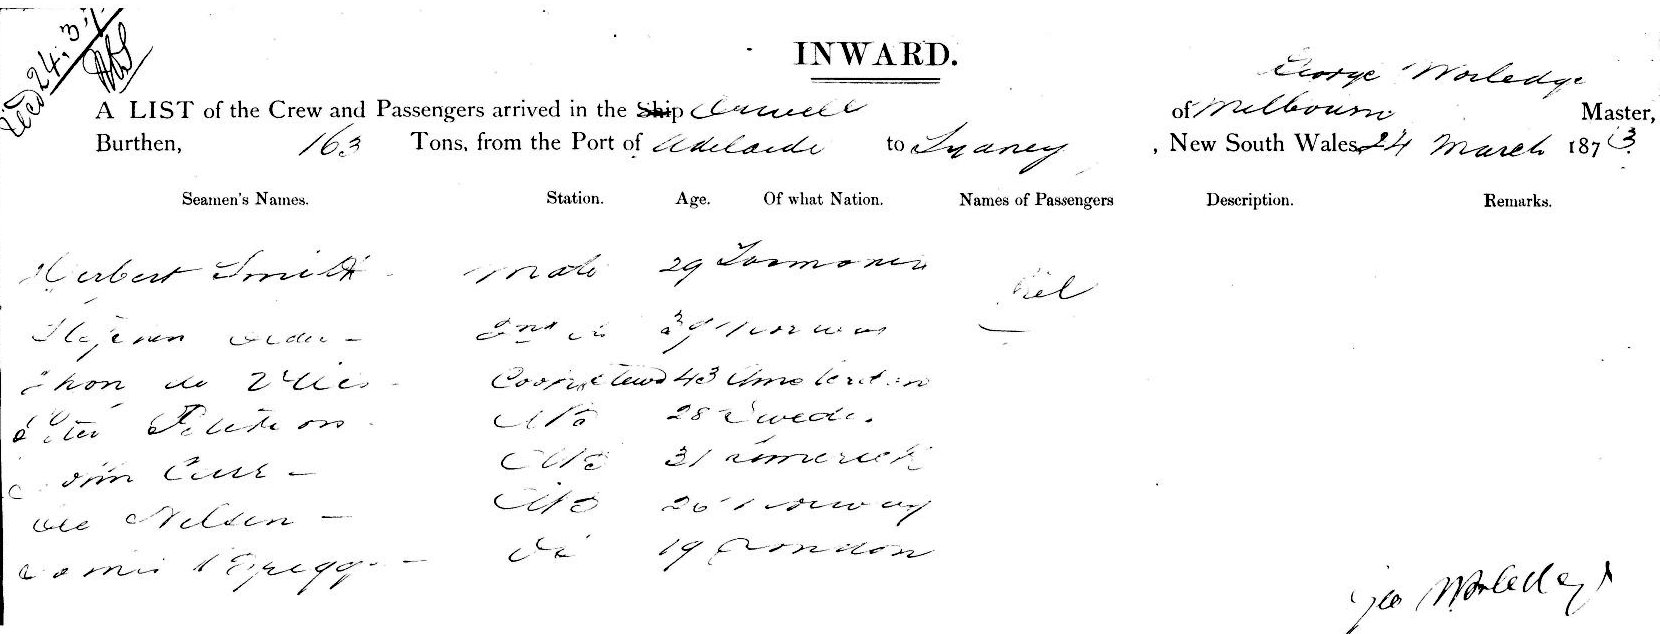 24.3.7
INWARD.
George Worledge
A LIST of the Crew and Passengers arrived in the Ship Orwell of Melbourn Master,
Burthen, 163 Tons, from the Port of Adelaide to Sydney, New South Wales, 24 March 1873.
Seamen's Names. Station. Age. Of what Nation. Names of Passengers Description. Remarks.
Herbert Smith - Mate 29
2nd do 39 Norway
de Cook Stewd 43 Amsterdam
Peter AB 28 Swede.
AB 31 Limerick
Ole Nelsen - AB 26 Norway
19 London
Geo Worledge